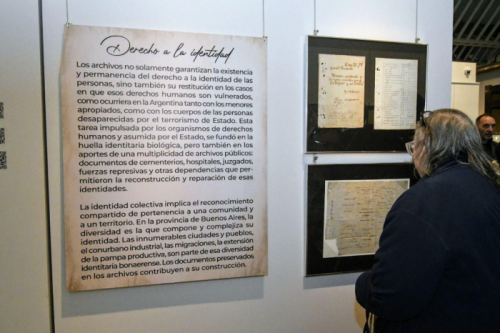 Derecho a la identidad
Los archivos no solamente garantizan la existencia
y permanencia del derecho a la identidad de las
personas, sino también su restitución en los casos
en que esos derechos humanos son vulnerados,
como ocurriera en la Argentina tanto con los menores
apropiados, como con los cuerpos de las personas
desaparecidas por el terrorismo de Estado. Esta
tarea impulsada por los organismos de derechos
humanos y asumida por el Estado, se fundó en la
huella identitaria biológica, pero también en los
aportes de una multiplicidad de archivos públicos:
documentos de cementerios, hospitales, juzgados,
fuerzas represivas y otras dependencias que per-
mitieron la reconstrucción y reparación de esas
identidades.
La identidad colectiva implica el reconocimiento
compartido de pertenencia a una comunidad y
a un territorio. En la provincia de Buenos Aires, la
diversidad es la que compone y complejiza su
identidad. Las innumerables ciudades y pueblos,
el conurbano industrial, las migraciones, la extensión
de la pampa productiva, son parte de esa diversidad
identitaria bonaerense. Los documentos preservados
en los archivos contribuyen a su construcción.